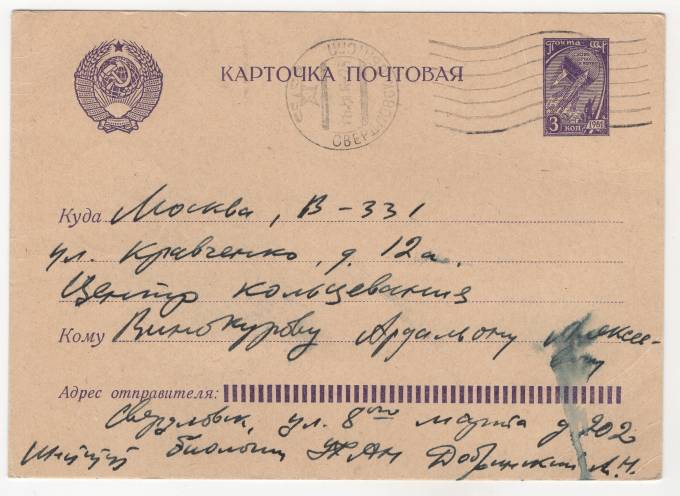 КАРТОЧКА ПОЧТОВАЯ
СВЕРДЛОВСК
Почта СССР
3 коп 1961
Куда Москва, В-331
ул. Кравченко, д. 12а.
Центр кольцевания
Кому Винокурову Ардальону Алексее-
вичу
Адрес отправителя:
Свердловск, ул. 8ого марта д 202
Институт биологии УФАН Добринский Л.Н.